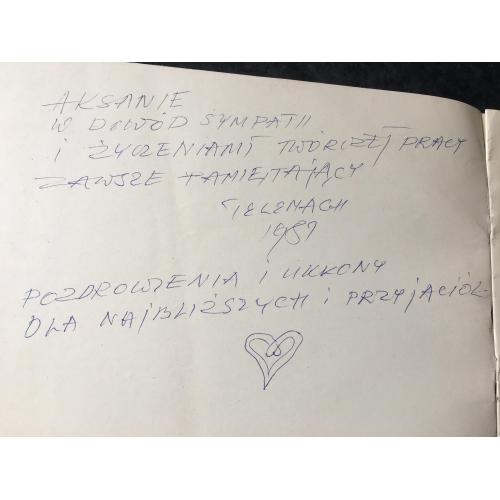 AKSANIE
W DOWÓD SYMPATII
I ŻYCZENIAMI TWÓRCZEJ PRACY
ZAWSZE PAMIĘTAJĄCY
TELEMACH
1989
POZDROWIENIA I UKŁONY
DLA NAJBLIŻSZYCH I PRZYJACIÓŁ